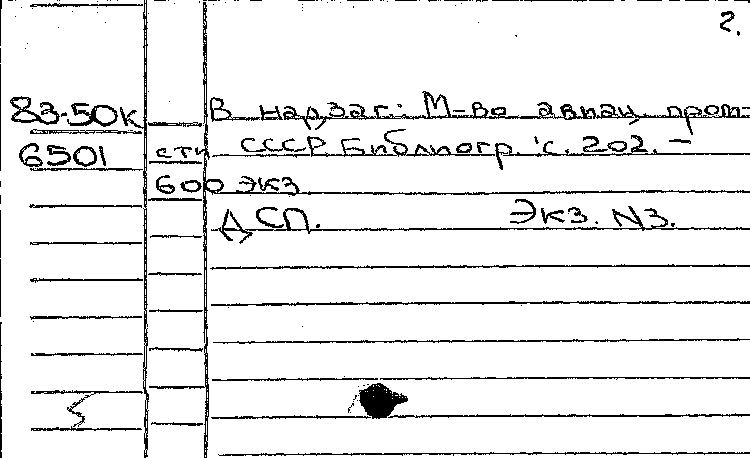 2.
83-50к В надзаг.: М-во авиац. пром-
6501 сти СССР. Библиогр.: с. 202. —
600 экз.
ДСП. Экз. N3.